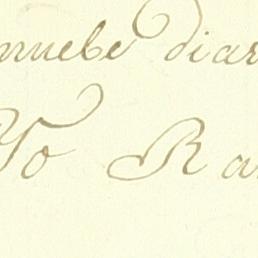 muebe diar
Yo Ra